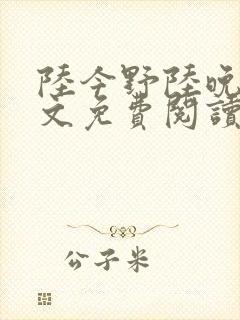 陸今野陸晚
文免費閱讀
公子米